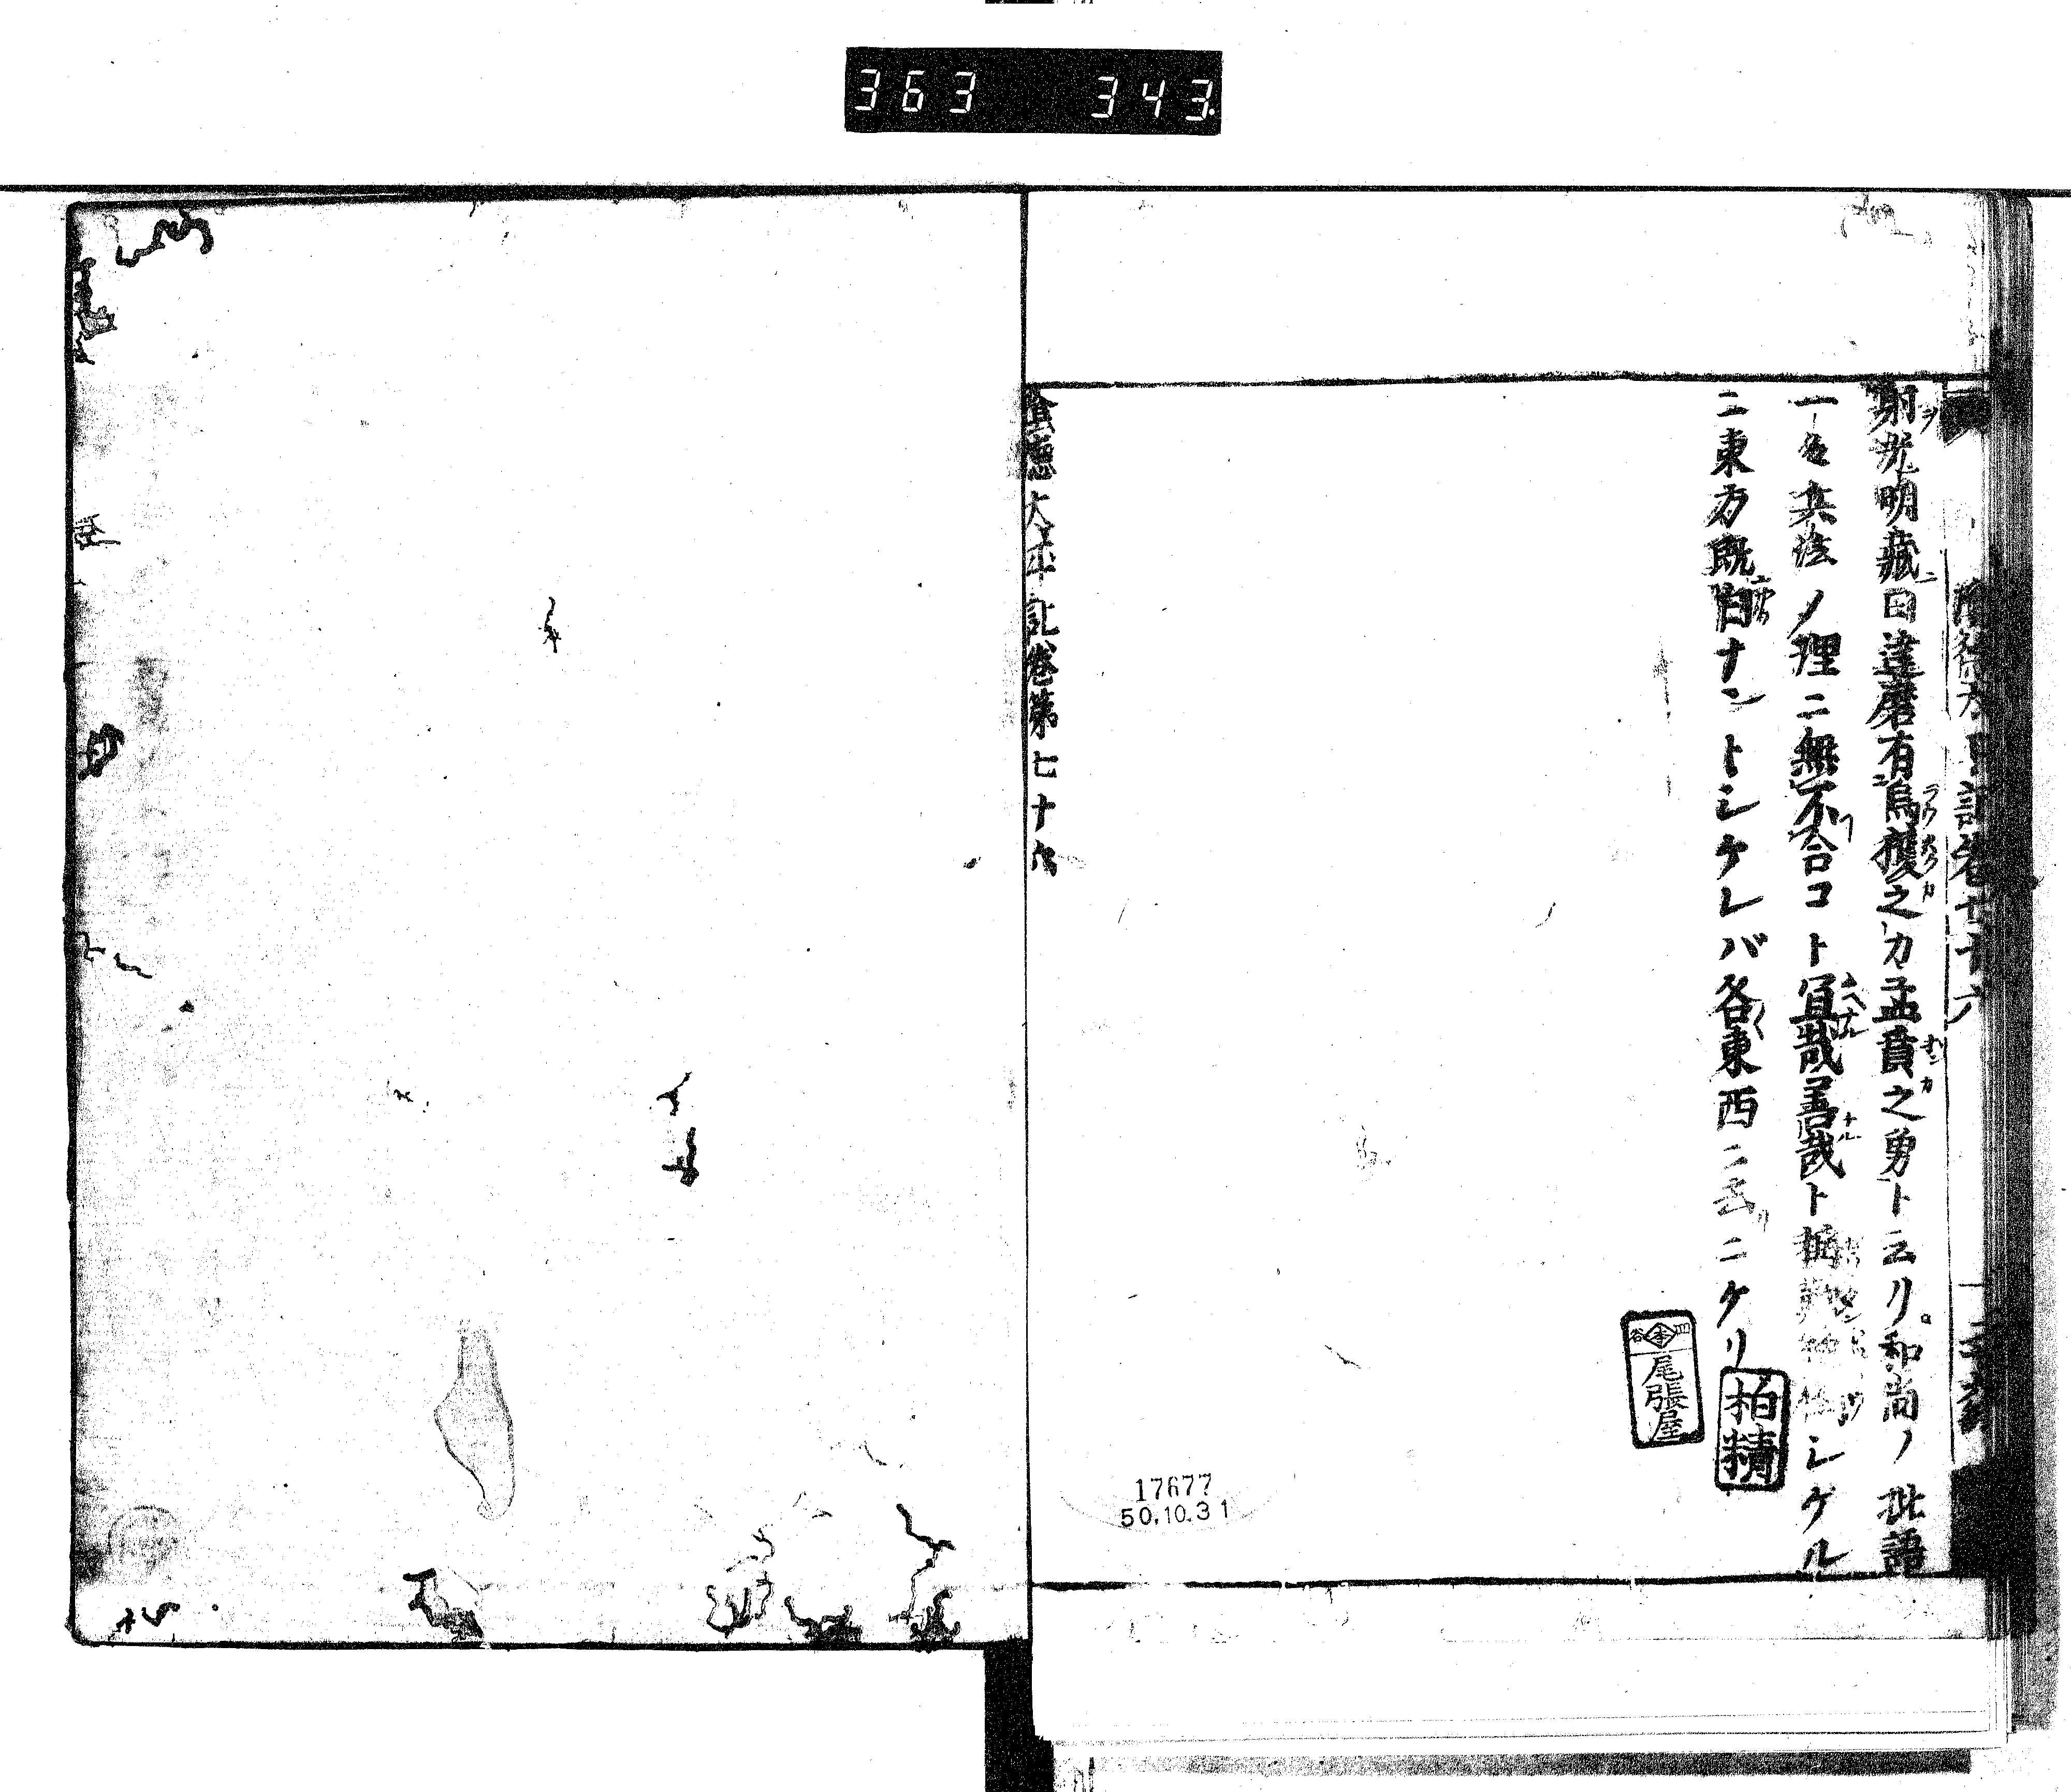 363 343
陰徳太平記卷七十六
射光明藏曰達磨有烏獲之力孟賁之勇ト云リ。和尚ノ批語
一々兵法ノ理ニ無不合コト宜哉善哉ト シケル
ニ東方既白ナントシケレバ各東西ニ ニケリ
柏精
四谷 尾張屋
17677
50.10.31
陰德太平記卷第七十六